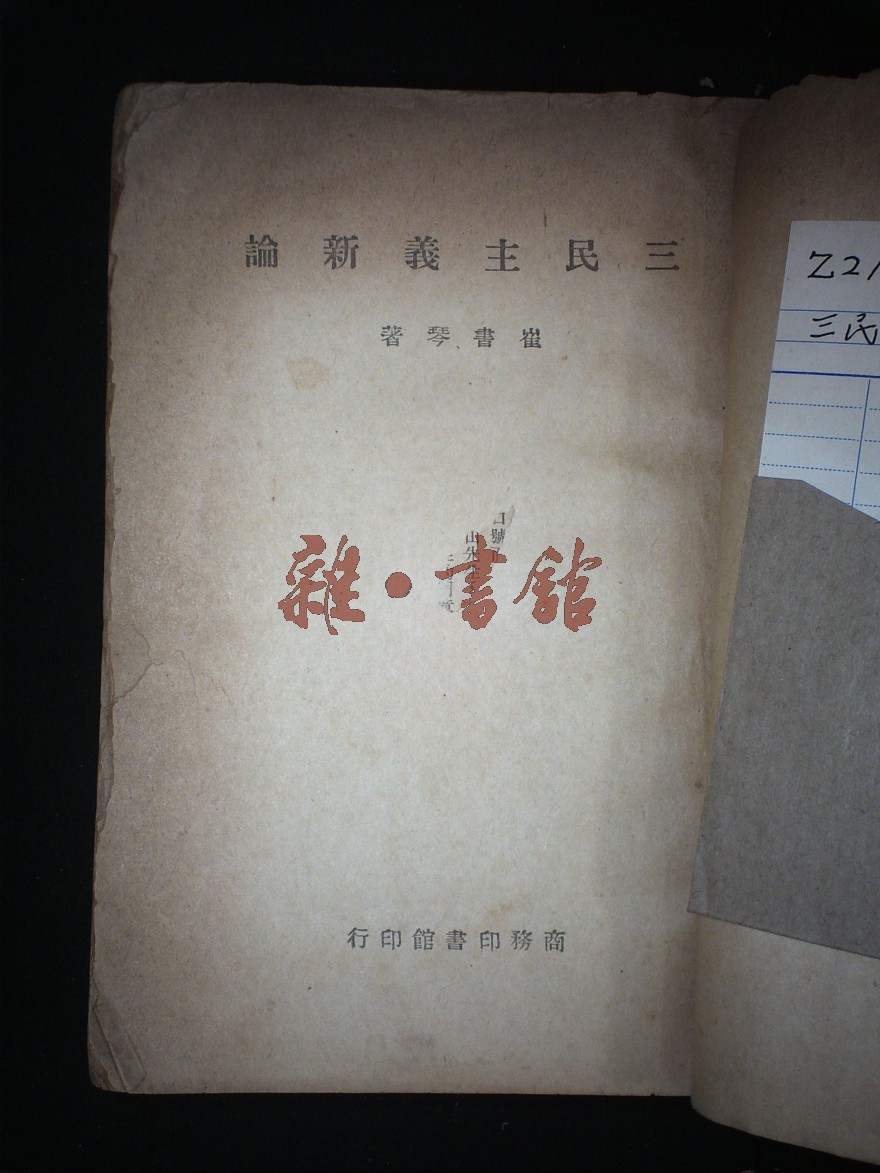 三民主義新論
崔書琴著
雜·書館
商務印書館印行
Z2
三民